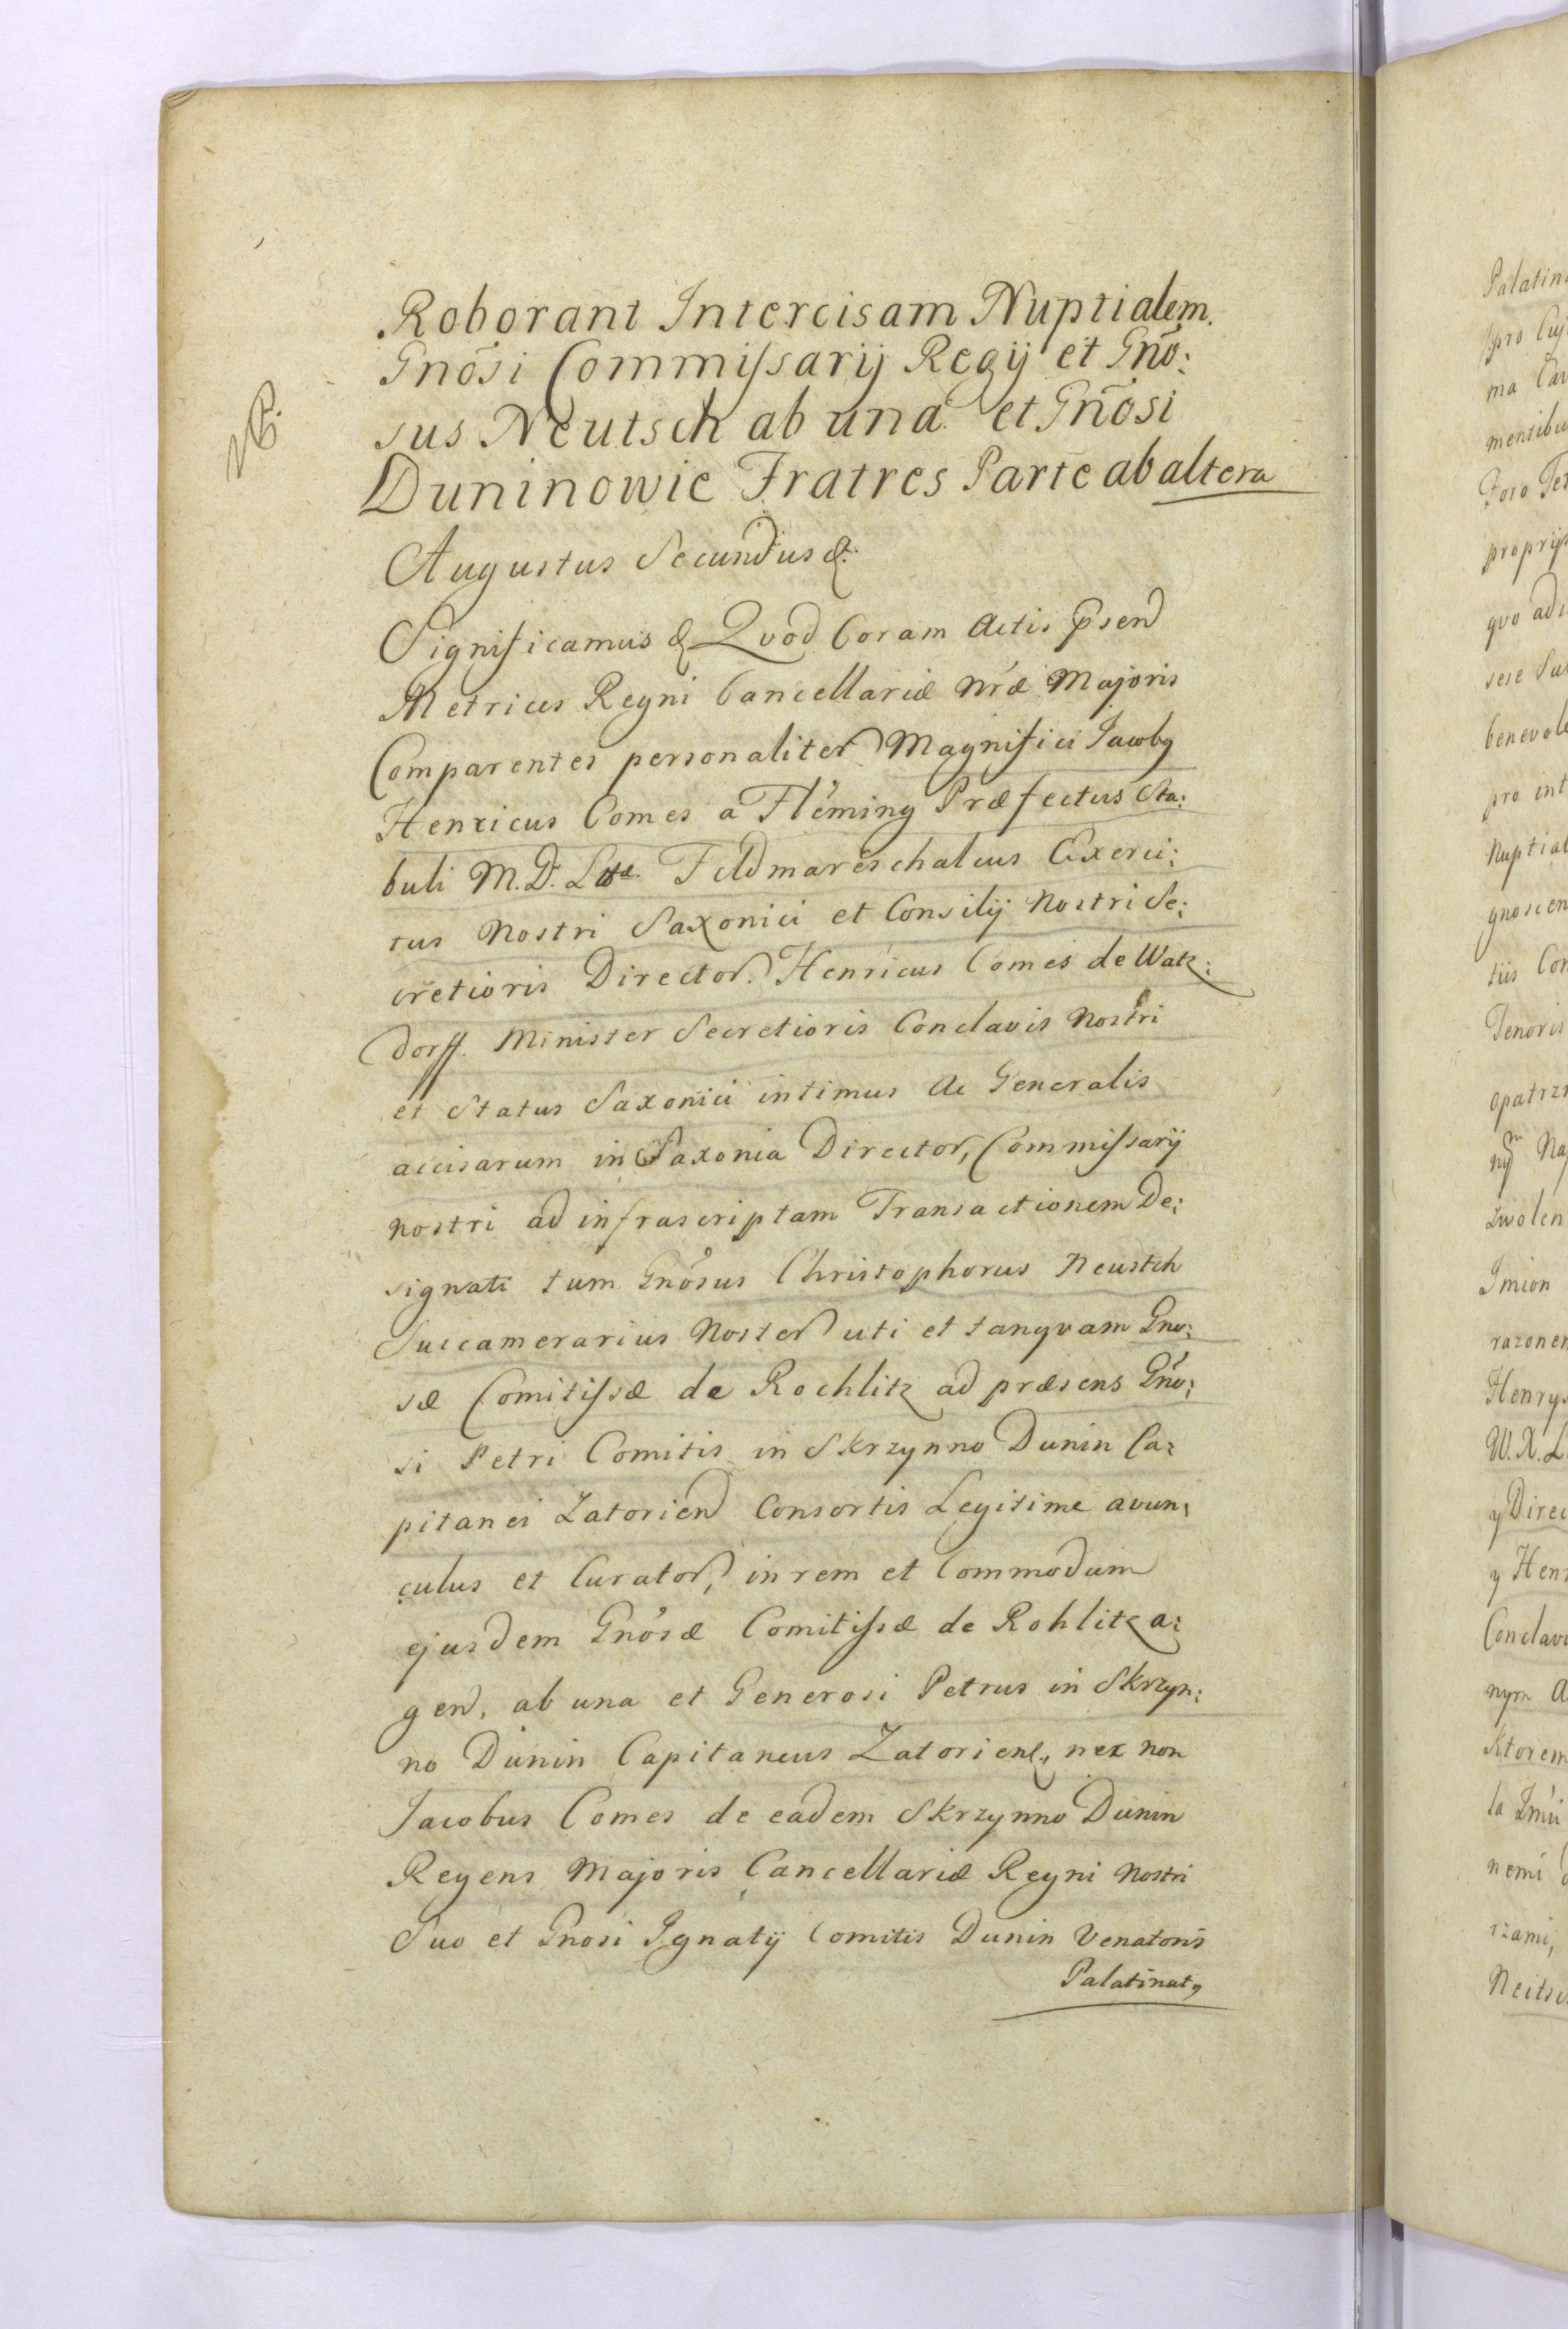 NB.
Roborant Intercisam Nuptialem.
Gnõsi Commissarij Regij et Gnõ:
sus Neutsch ab una et Gnõsi
Duninowie Fratres Parte ab altera
Augustus Secundus &.
Significamus & Qvod Coram Actis p̃send
Metrices Regni Cancellariæ Nræ Majoris
Comparentes personaliter Magnifici Jacoby
Henricus Comes a Fleming Præfectus Sta:
buli M. D. Feldmareschalcus Exerci:
tus Nostri Saxonici et Consilij Nostri Se:
cretioris Director. Henricus Comes de Watz:
dorff. Minister Secretioris Conclavis Nostri
et Status Saxonici intimus Ac Generalis
accisarum in Saxonia Director, Commissarij
nostri ad infrascriptam Transactionem De:
signati tum Gnõsus Christophorus Neustch
Succamerarius Noster uti et tanqvam Gno:
sæ Comitissæ de Rochlitz ad præsens Gnõ:
si Petri Comitis in Skrzynno Dunin Ca:
pitanei Zatorien Consortis Legitime avun:
culus et Curator, in rem et Commodum
ejusdem Gnõsæ Comitissæ de Rohlitz a:
gen, ab una et Generosi Petrus in Skrzyn:
no Dunin Capitaneus Zatorien., nec non
Jacobus Comes de eadem Skrzynno Dunin
Regens Majoris Cancellariæ Regni Nostri
Suo et Gnosi Ignatij Comitis Dunin Venatoris
Palatinat,
Palatin
pro Cuj
ma
mentibu
Foro
proprijs
qvo ad
sese
benevole
pro int
Nuptial
gnoscen
tiis Con
Tenoris
opatrzn
Zwolen
Imion
razonem
Henrys
W. X. L
y Direc
y Hen
Conclavi
nym A
Ktorem
la
nemi
rzami,
Neitsc